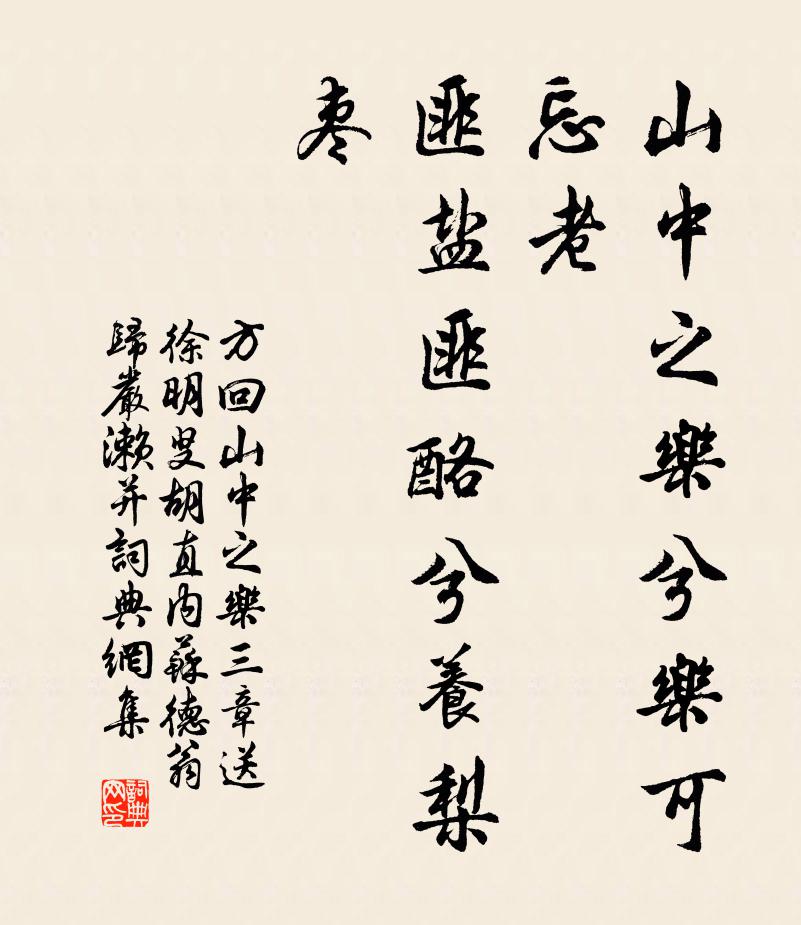 山中之樂兮樂可
忘老
匪盐匪酪兮養梨
枣
方回山中之樂三章送
徐明叟胡直内蘇德翁
歸嚴濑并詞典網集
詞典
网印